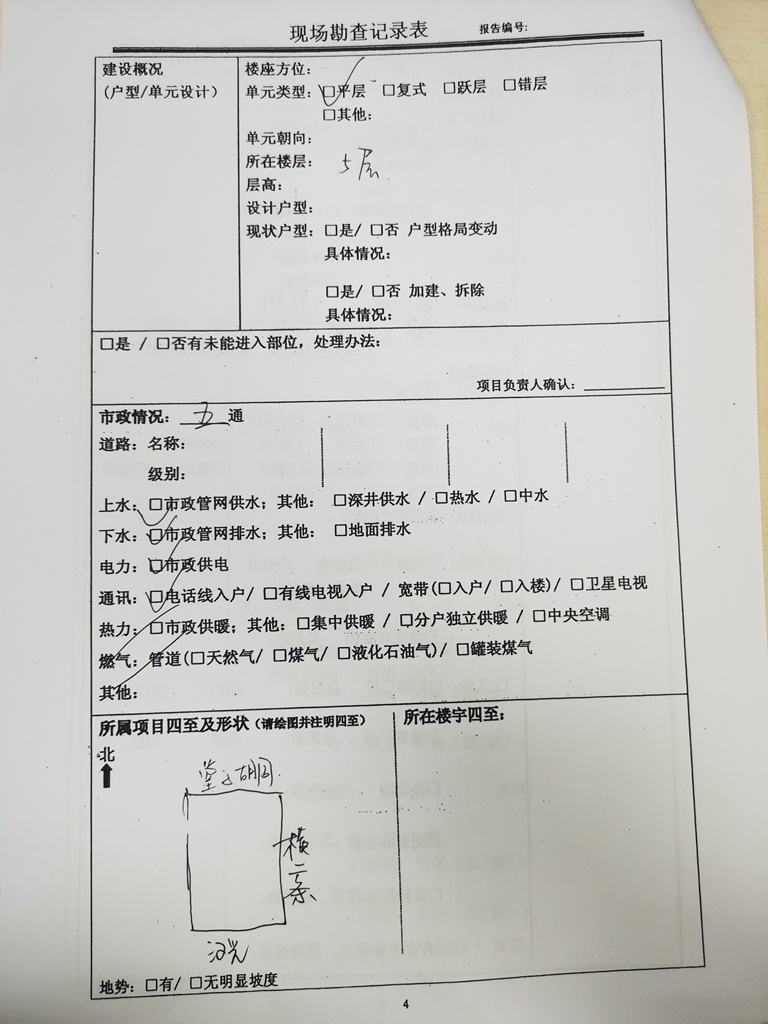 现场勘查记录表 报告编号:
建设概况
(户型/单元设计)
楼座方位:
单元类型: □平层 □复式 □跃层 □错层
□其他:
单元朝向:
所在楼层: 5层
层高:
设计户型:
现状户型: □是/ □否 户型格局变动
具体情况:
□是/ □否 加建、拆除
具体情况:
□是 / □否有未能进入部位，处理办法:
项目负责人确认:
市政情况: 五通
道路: 名称:
级别:
上水: □市政管网供水; 其他: □深井供水 / □热水 / □中水
下水: □市政管网排水; 其他: □地面排水
电力: □市政供电
通讯: □电话线入户/ □有线电视入户 / 宽带(□入户/ □入楼)/ □卫星电视
热力: □市政供暖; 其他: □集中供暖 / □分户独立供暖 / □中央空调
燃气: 管道(□天然气/ □煤气/ □液化石油气)/ □罐装煤气
其他:
所属项目四至及形状 (请绘图并注明四至)
所在楼宇四至:
北
堂子胡同
横二条
地势: □有/ □无明显坡度
4